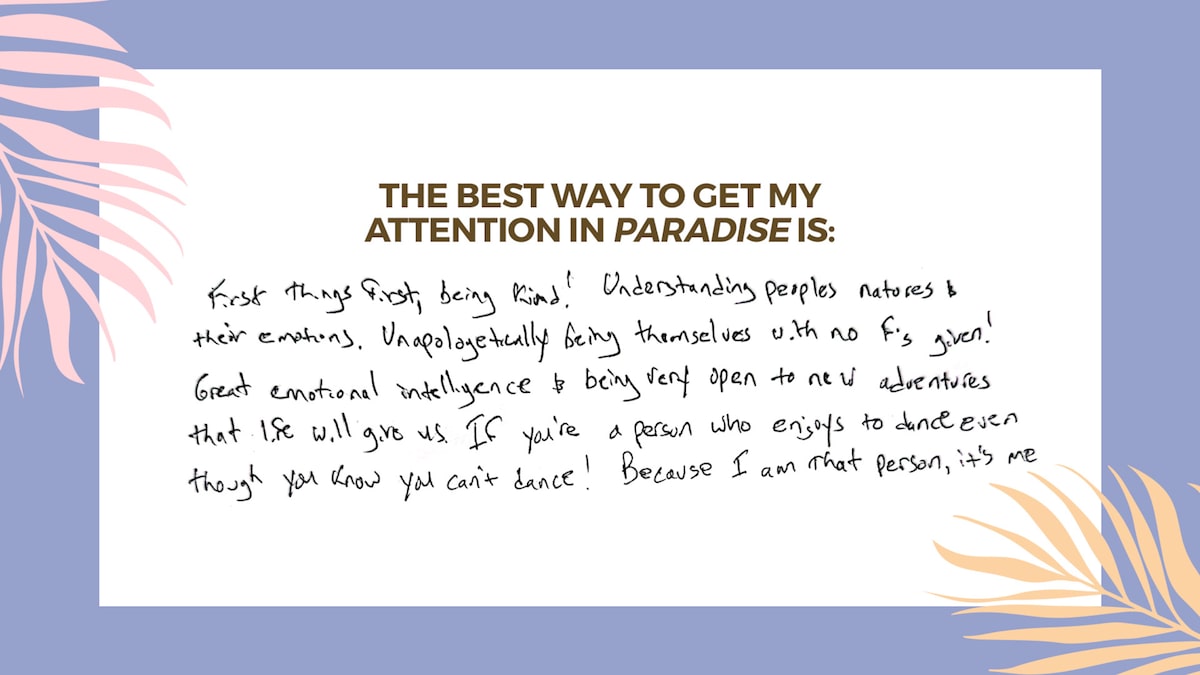 THE BEST WAY TO GET MY
ATTENTION IN PARADISE IS:
First things first, being kind! Understanding peoples natures &
their emotions. Unapologetically being themselves with no F's given!
Great emotional intelligence & being very open to new adventures
that life will give us. If you're a person who enjoys to dance even
though you know you can't dance! Because I am that person, it's me